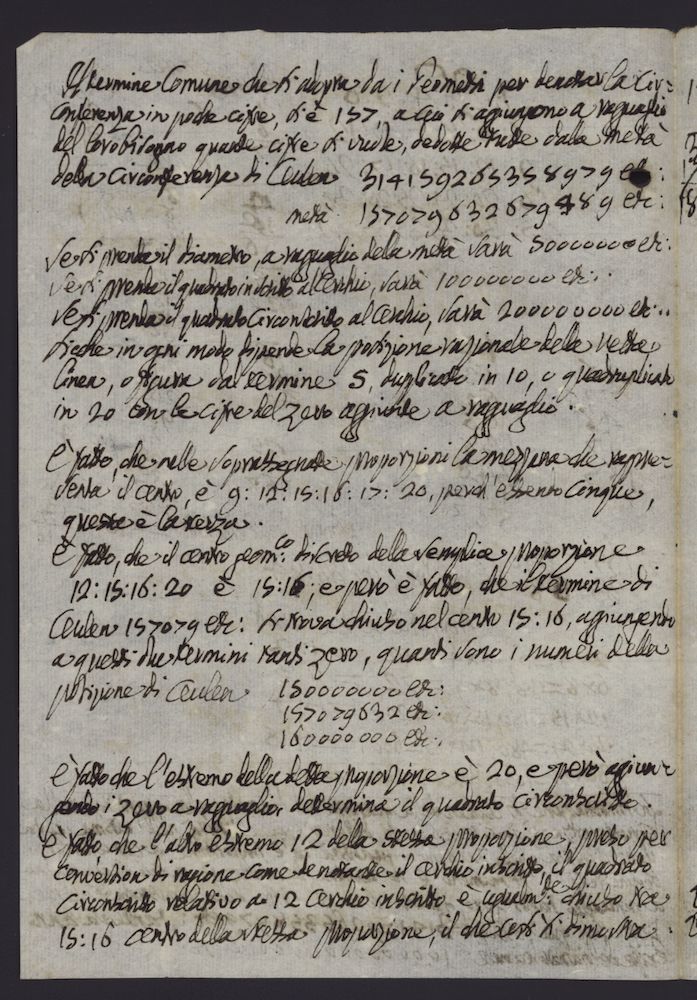 Il termine Comune che si adopra da i Geometri per denotar la Cir=
conferenza in poche cifre, si è 157, a cui si aggiungono a ragguaglio
del loro bisogno quante cifre si vuole, dedotte tutte dalla metà
della Circonferenza di Ceulen 314159265358979 etc:
metà 157079632679489 etc:
Se si prenda il diametro, a ragguaglio della metà sarà 50000000 etc:
Se si prenda il quadrato inscritto al Cerchio, sarà 100000000 etc:
Se si prenda il quadrato Circonscritto al Cerchio, sarà 200000000 etc:
sicche in ogni modo dipende la posizione razionale della retta
linea, o figura dal termine 5, duplicato in 10, o quadruplicato
in 20 con le cifre del zero aggiunte a ragguaglio.
È fatto, che nelle soprassegnate proporzioni la mezzana che rappre=
senta il cento, è 9: 12: 15: 16: 17: 20, perch'essendo cinque,
questa è la terza.
È fatto, che il centro geom.co discreto della semplice proporzione
12: 15: 16: 20 è 15: 16, e però è fatto, che il termine di
Ceulen 157079 etc: si trova chiuso nel centro 15: 16, aggiungendo
a questi due termini tanti zero, quanti sono i numeri della
posizione di Ceulen 150000000 etc:
157079632 etc:
160000000 etc:
È fatto che l'estremo della detta proporzione è 20, e però aggiun=
gendo i zero a ragguaglio, determina il quadrato circonscritto.
È fatto che l'altro estremo 12 della stessa proporzione, preso per
conversion di ragione come denotante il cerchio inscritto, il quadrato
Circonscritto relativo a 12 Cerchio inscritto è egualm.te chiuso tra
15: 16 centro della stessa proporzione, il che così si dimostra.